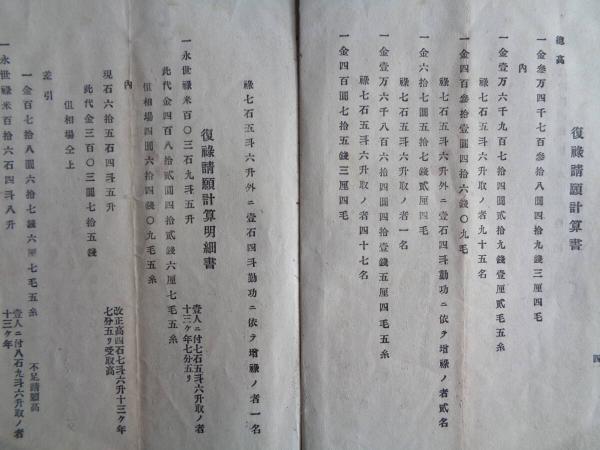 復祿請願計算書
總高
一金參万四千七百參拾八圓四拾九錢三厘四毛
內
一金壹万六千九百七拾四圓貳拾九錢壹厘貳毛五糸
祿七石五斗六升取ノ者九十五名
一金四百參拾壹圓四拾六錢〇九毛
祿七石五斗六升外ニ壹石四斗勤功ニ依テ增祿ノ者貳名
一金六拾七圓五拾七錢貳厘四毛
祿七石五斗六升取ノ者一名
一金壹万六千八百六拾四圓四拾壹錢五厘四毛五糸
祿七石五斗六升取ノ者四十七名
一金四百圓七拾五錢三厘四毛
四
祿七石五斗六升外ニ壹石四斗勤功ニ依テ增祿ノ者一名
復祿請願計算明細書
壹人ニ付七石五斗六升取ノ者
十三ケ年七分五リ
一永世祿米百〇三石九斗五升
此代金四百八拾貳圓四拾貳錢六厘七毛五糸
但相場四圓六拾四錢〇九毛五糸
內
改正高四石七斗六升十三ケ年
七分五リ受取高
現石六拾五石四斗五升
此代金三百〇三圓七拾五錢
但相場仝上
差引
不足請願高
一金百七拾八圓六拾七錢六厘七毛五糸
壹人ニ付八石九斗六升取ノ者
十三ケ年
一永世祿米百拾六石四斗八升